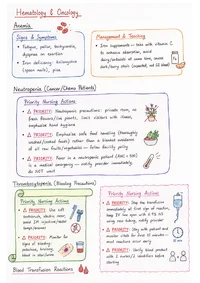 Hematology & Oncology
Anemia
Signs & Symptoms
• Fatigue, pallor, tachycardia,
dyspnea on exertion
• Iron deficiency: koilonychia
(spoon nails), pica
Management & Teaching
• Iron supplements — take with vitamin C
to enhance absorption, avoid
dairy/antacids at same time, causes
dark/tarry stools (expected, not GI bleed)
Fe
Neutropenia (Cancer/Chemo Patients)
Priority Nursing Actions
• PRIORITY: Neutropenic precautions: private room, no
fresh flowers/live plants, limit visitors with illness,
emphasize hand hygiene
• PRIORITY: Emphasize safe food handling (thoroughly
washed/cooked foods) rather than a blanket avoidance
of all raw fruits/vegetables — follow facility policy
• PRIORITY: Fever in a neutropenic patient (ANC < 500)
is a medical emergency — notify provider immediately,
do NOT wait
Thrombocytopenia (Bleeding Precautions)
Priority Nursing Actions
• PRIORITY: Use soft
toothbrush, electric razor,
avoid IM injections/rectal
temps/enemas
• PRIORITY: Monitor for
signs of bleeding:
petechiae, bruising,
blood in stool/urine
Priority Nursing Actions
• PRIORITY: Stop the transfusion
immediately at first sign of reaction,
keep IV line open with 0.9% NS
using new tubing, notify provider
• PRIORITY: Stay with patient and
monitor vitals for first 15 minutes —
most reactions occur early
• PRIORITY: Verify blood product
with 2 nurses/2 identifiers before
starting
15 min
Blood Transfusion Reactions